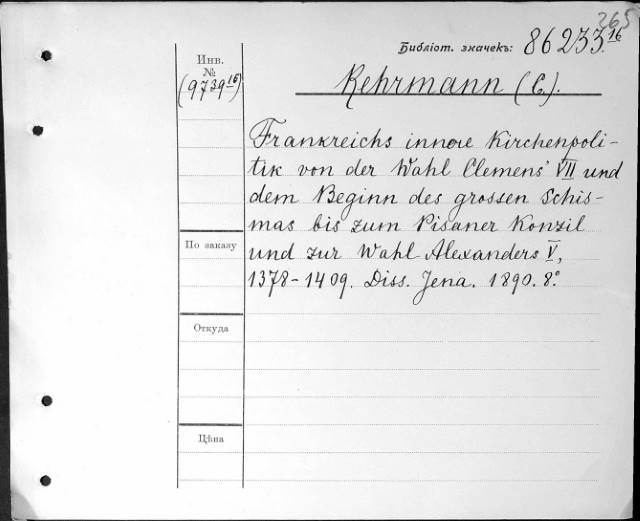 265
Библіот. значекъ: 86233.16
Инв.
№
(9739-16)
Kehrmann (C.).
Frankreichs innere Kirchenpoli-
tik von der Wahl Clemens' VII und
dem Beginn des grossen Schis-
mas bis zum Pisaner Konzil
und zur Wahl Alexanders V,
1378-1409. Diss. Jena. 1890. 8.°
По заказу
Откуда
Цѣна